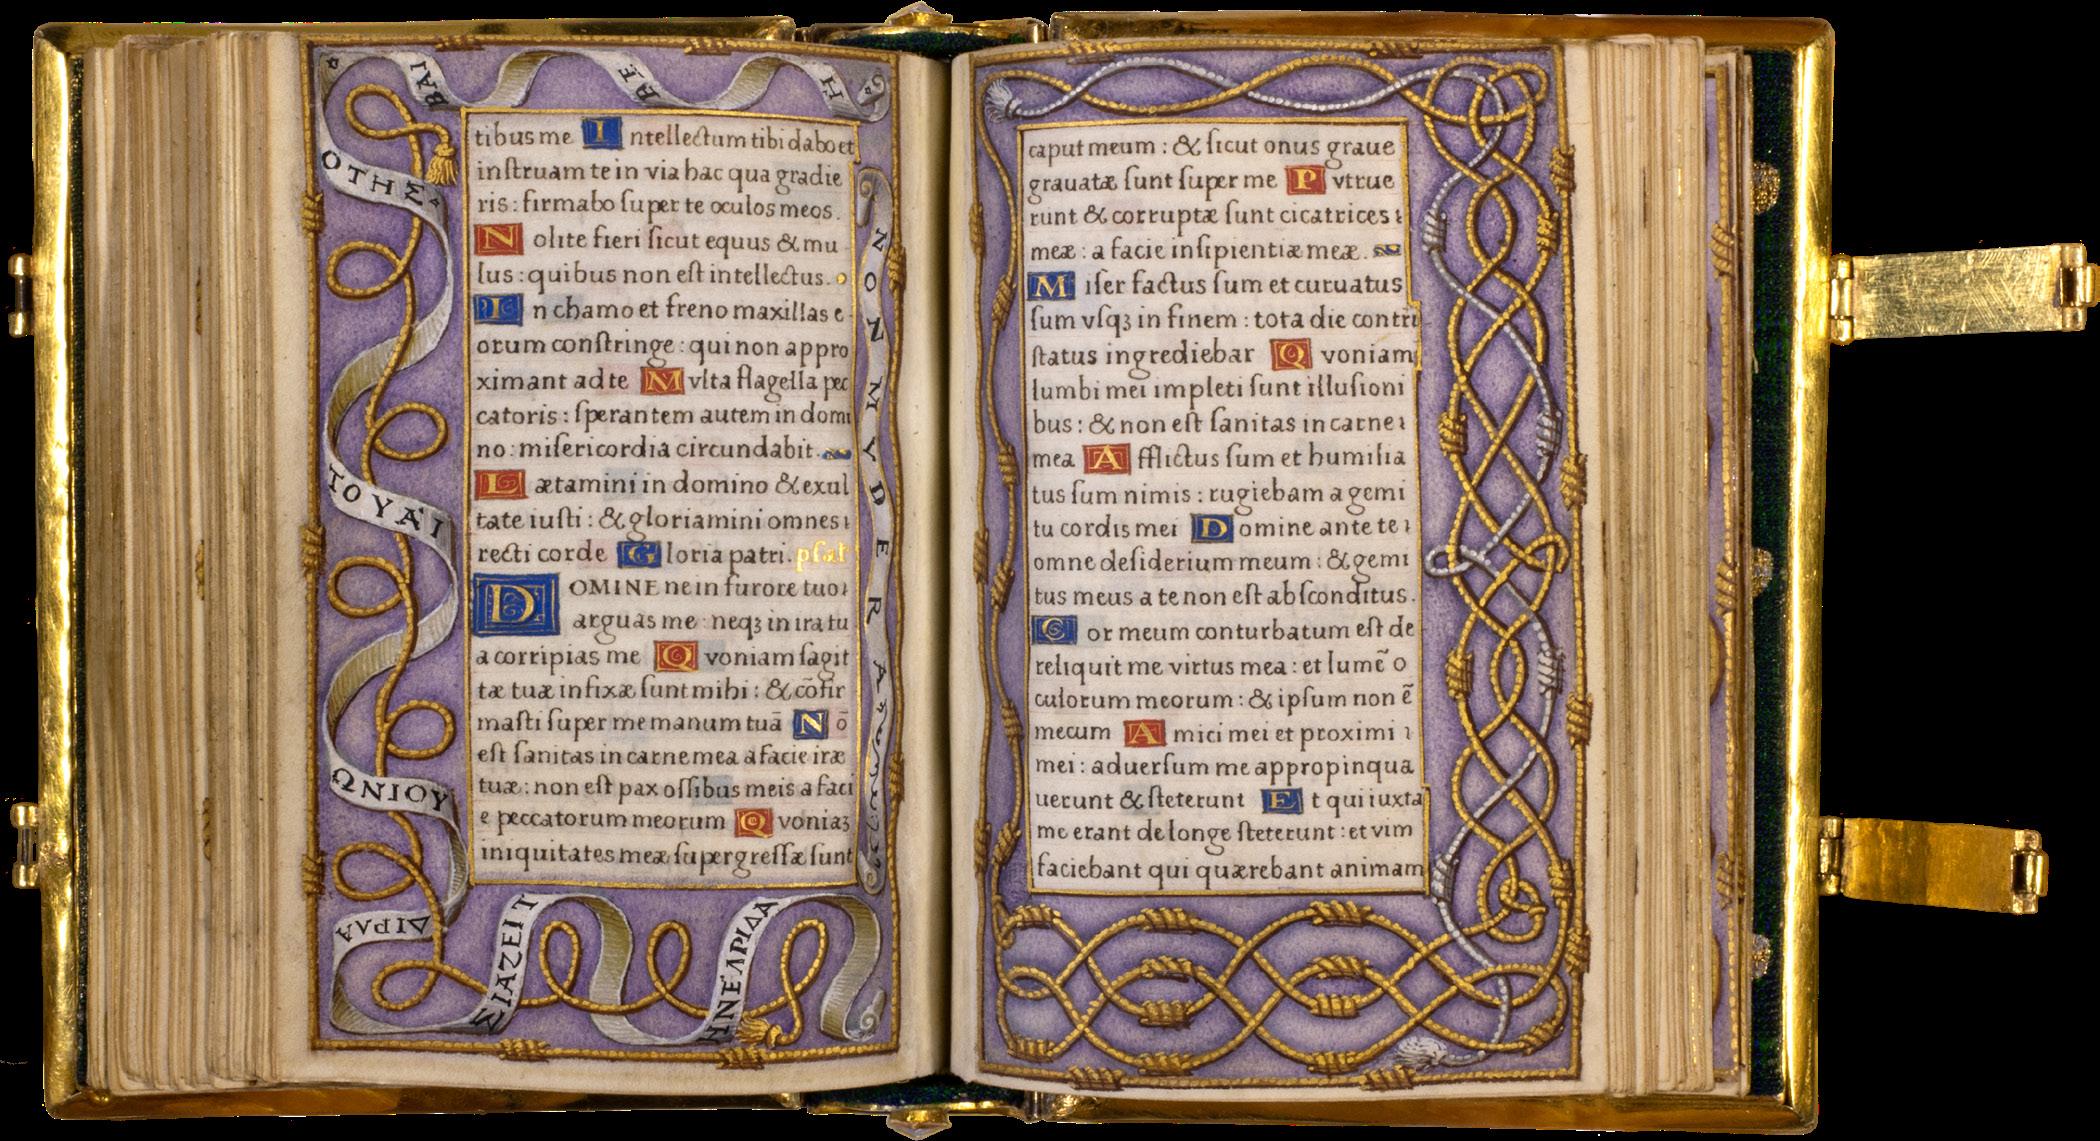 tibus me I ntellectum tibi dabo et
inſtruam te in via hac qua gradie
ris : firmabo ſuper te oculos meos.
N olite fieri ſicut equus & mu
lus : quibus non eſt intellectus.
I n chamo et freno maxillas e
orum conſtringe : qui non appro
ximant ad te M vlta flagella pec
catoris : ſperantem autem in domi
no : miſericordia circundabit.
L ætamini in domino & exul
tate iuſti : & gloriamini omnes
recti corde G loria patri. pſal
D OMINE ne in furore tuo
arguas me : neqʒ in ira tu
a corripias me Q voniam ſagit
tæ tuæ infixæ ſunt mihi : & cõfir
maſti ſuper me manum tuã N õ
eſt ſanitas in carne mea a facie iræ
tuæ : non eſt pax oſſibus meis a faci
e peccatorum meorum Q voniaʒ
iniquitates meæ ſupergreſſæ ſunt
BAI
ΒΕ
Η
ΟΤΗΣ
ΤΟΥΑΙ
ΩΝΙΟΥ
ΔΙΡΛΑ
ΜΙΑΖΕΙΤ
ΗΝΕΛΡΙΔΑ
NON MVDERA
caput meum : & ſicut onus graue
grauatæ ſunt ſuper me P vtrue
runt & corruptæ ſunt cicatrices
meæ : a facie inſipientiæ meæ.
M iſer factus ſum et curuatus
ſum vſqʒ in finem : tota die contri
ſtatus ingrediebar Q voniam
lumbi mei impleti ſunt illuſioni
bus : & non eſt ſanitas in carne
mea A fflictus ſum et humilia
tus ſum nimis : rugiebam a gemi
tu cordis mei D omine ante te
omne deſiderium meum : & gemi
tus meus a te non eſt abſconditus.
C or meum conturbatum eſt de
reliquit me virtus mea : et lumẽ o
culorum meorum : & ipſum non ẽ
mecum A mici mei et proximi
mei : aduerſum me appropinqua
uerunt & ſteterunt E t qui iuxta
me erant de longe ſteterunt : et vim
faciebant qui quærebant animam